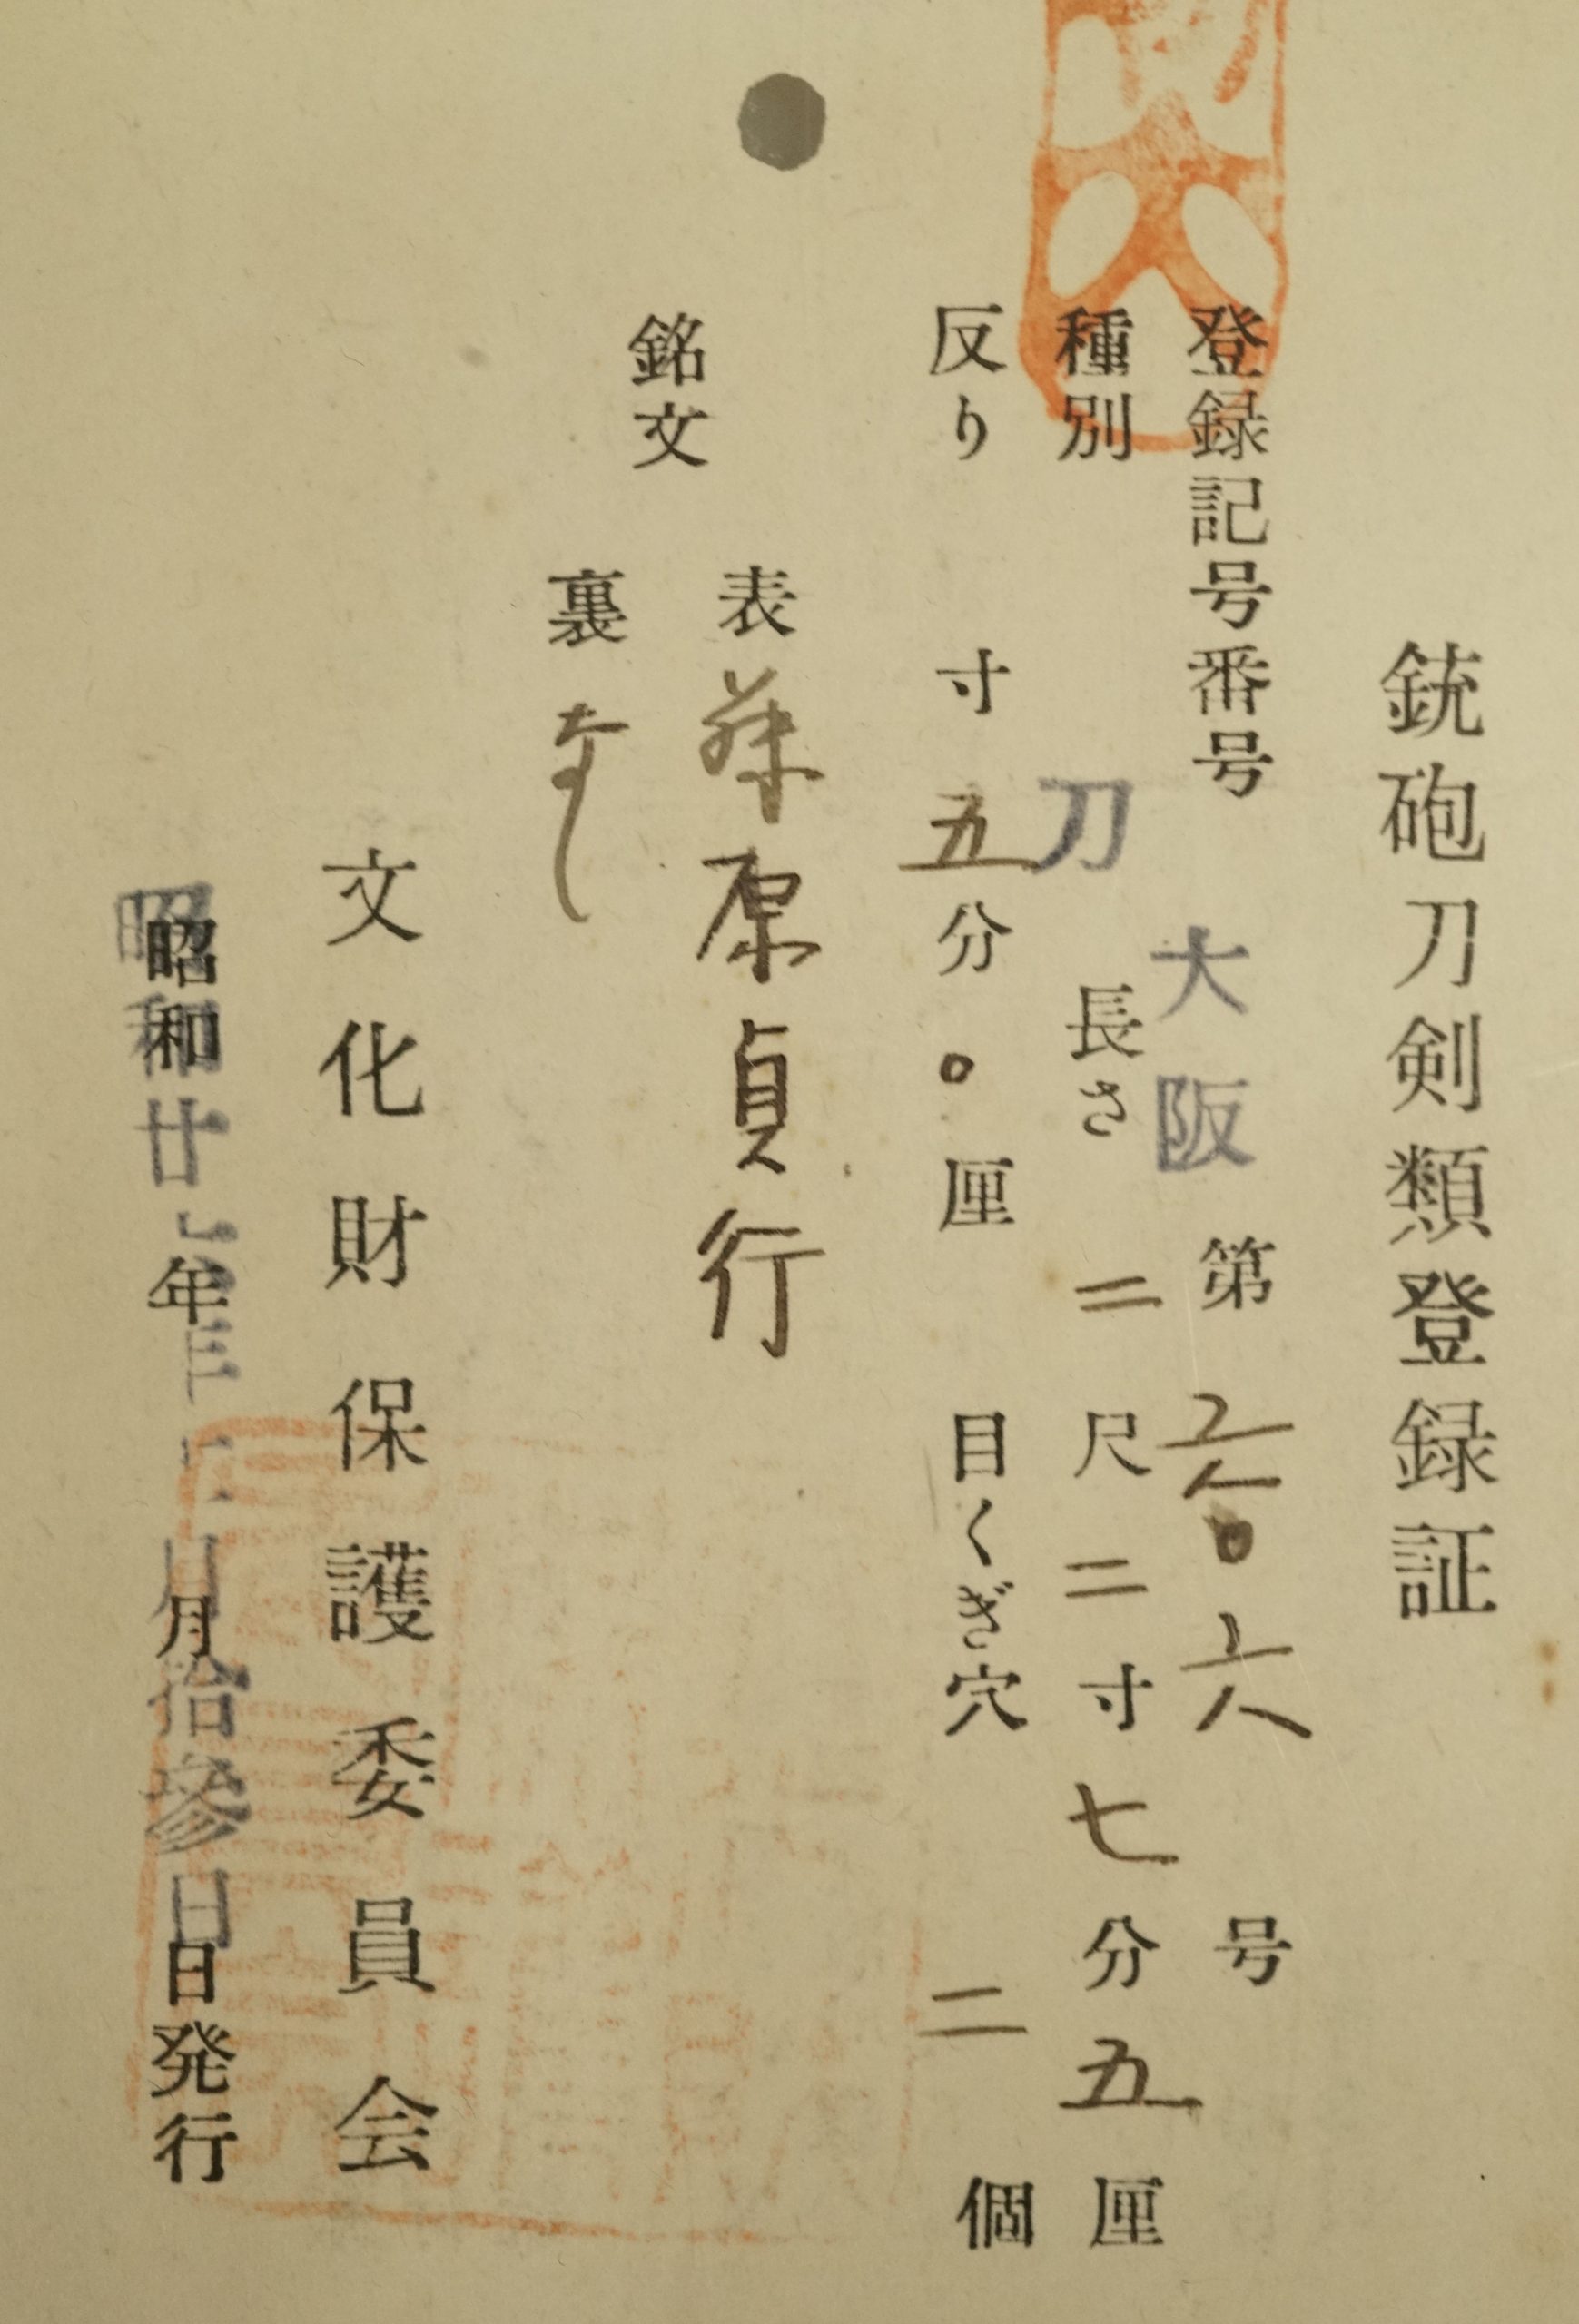 銃砲刀剣類登録証
登録記号番号 大阪 第 六〇六 号
種別 刀 長さ 二尺二寸七分五厘
反り 寸五分〇厘 目くぎ穴 二個
銘文
表 藤原貞行
裏 なし
文化財保護委員会
昭和廿 年 月拾参日発行